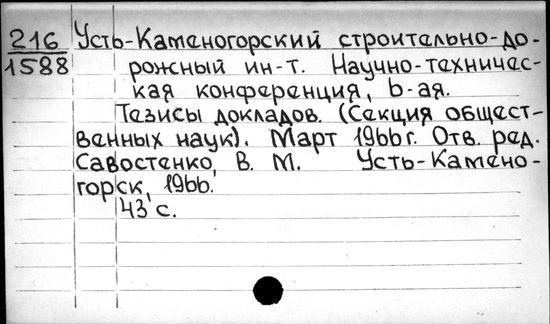 216 Усть-Каменогорский строительно-до-
1588 рожный ин-т. Научно-техничес-
кая конференция, 6-ая.
Тезисы докладов. (Секция общест-
венных наук). Март 1966г. Отв. ред.
Савостенко, В. М. Усть-Камено-
горск, 1966.
43 с.